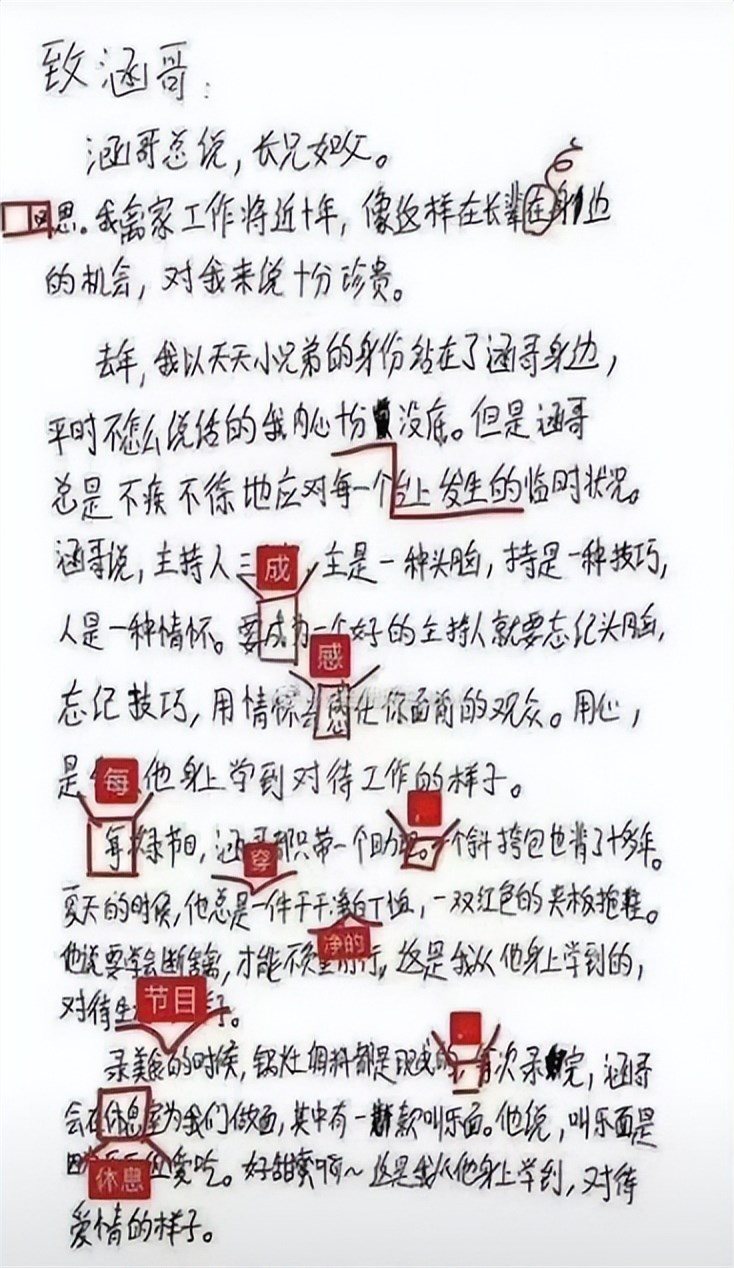 致涵哥：
涵哥总说，长兄如父。
思。我离家工作将近十年，像这样在长辈在身边
的机会，对我来说十分珍贵。
去年，我以天天小兄弟的身份站在了涵哥身边，
平时不怎么说话的我内心十分没底。但是涵哥
总是不疾不徐地应对每一个台上发生的临时状况。
成
涵哥说，主持人三 主是一种头脑，持是一种技巧，
人是一种情怀。要成为一个好的主持人就要忘纪头脑，
感
忘记技巧，用情怀去感化你面前的观众。用心，
每
是 他身上学到对待工作的样子。
每次录节目，涵哥都只带一个助理。一个斜挎包也背了十多年。
穿
夏天的时候，他总是一件干干净白T恤，一双红色的夹板拖鞋。
净的
他说要学会断舍离，才能不负重前行，这是我从他身上学到的，
节目
对待生 了。
录美食的时候，锅灶调料都是现成的 首次录完，涵哥
会在休息室为我们做面，其中有一款叫乐面。他说，叫乐面是
休息
因 爱吃。好甜蜜啊～这是我从他身上学到，对待
爱情的样子。